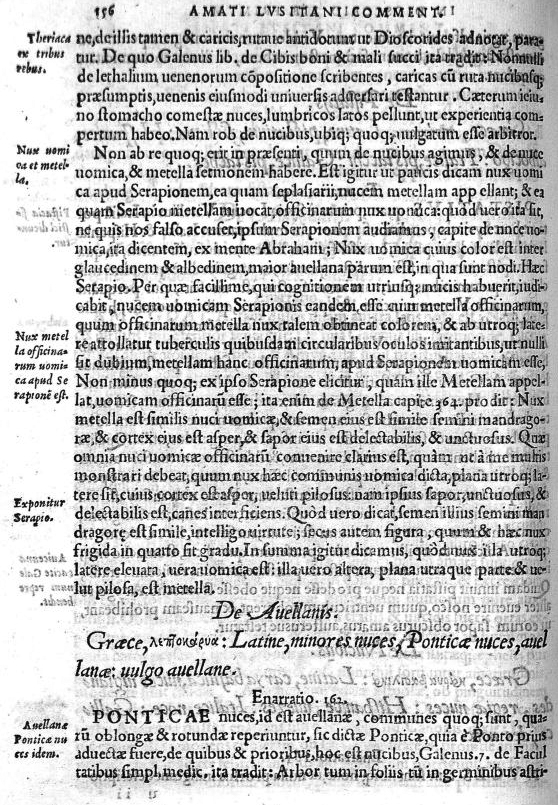 156 AMATI LVSITANI COMMENT. II
Theriaca
ex tribus
rebus.
ne, de istis tamen & caricis, rutaue antidotum, ut Dioscorides adnotat, para-
tur. De quo Galenus lib. de Cibis boni & mali succi ita tradit: Nonnulli
de lethalium uenenorum cōpositione scribentes, caricas cū ruta nucibusq;
præsumptis, uenenis eiusmodi uniuersis aduersari testantur. Cæterum ieiu-
no stomacho comestæ nuces, lumbricos latos pellunt, ut experientia com-
pertum habeo. Nam rob de nucibus, ubiq; quoq; uulgatum esse arbitror.
Nux uomi
ca et metel-
la.
Non ab re quoq; erit in præsenti, quum de nucibus agimus, & de nuce
uomica, & metella sermonem habere. Est igitur ut paucis dicam nux uomi
ca apud Serapionem, ea quam seplasiarij, nucem metellam appellant; & ea
quam Serapio metellam uocat, officinarum nux uomica: quòd uero ita sit,
ne quis nos falso accuset, ipsum Serapionem audiamus, capite de nuce uo-
mica, ita dicentem, ex mente Abrahami; Nux uomica cuius color est inter
glaucedinem & albedinem, maior auellana parum est, in qua sunt nodi. Hæc
Serapio. Per quæ facillime, qui cognitionem utriusq; nucis habuerit, iudi-
cabit, nucem uomicam Serapionis eandem esse cum metella officinarum,
quum officinarum metella nux talem obtineat colorem, & ab utroq; late-
re attollatur tuberculis quibusdam circularibus oculos imitantibus, ut nulli
sit dubium, metellam hanc officinarum, apud Serapionem uomicam esse,
Nux metel
la officina-
rum uomi-
ca apud Se
rapionē est.
Non minus quoq; ex ipso Serapione elicitur, quàm ille Metellam appel-
lat, uomicam officinarū esse; ita enim de Metella capite 364. prodit: Nux
metella est similis nuci uomicæ, & semen eius est simile semini mandrago-
ræ, & cortex eius est asper, & sapor eius est delectabilis, & unctuosus. Quæ
omnia nuci uomicæ officinarū conuenire clarius est, quàm ut à me multis
monstrari debeat, quum nux hæc communis uomica dicta, plana utroq; la-
tere sit, cuius cortex est asper, ueluti pilosus: nam ipsius sapor, unctuosus, &
Exponitur
Serapio.
delectabilis est, canes interficiens. Quòd uero dicat, semen illius semini man
dragoræ est simile, intelligo uirtute; secus autem figura, quum & hæc nux
frigida in quarto sit gradu. In summa igitur dicamus, quòd nux illa utroq;
latere eleuata, uera uomica est: illa uero altera, plana utraque parte & ue-
lut pilosa, est metella.
De Auellanis.
Græce, λεπτοκάρυα: Latine, minores nuces, Ponticæ nuces, auel
lanæ: uulgo auellane.
Enarratio. 162.
Auellanæ
Ponticæ nu
ces idem.
PONTICAE nuces, id est auellanæ, communes quoq; sunt, qua-
rū oblongæ & rotundæ reperiuntur, sic dictæ Ponticæ, quia è Ponto prius
aduectæ fuere, de quibus & prioribus, hoc est nucibus, Galenus. 7. de Facul
tatibus simpl. medic. ita tradit: Arbor tum in foliis tū in germinibus astri-